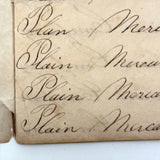 Plain Merca
Plain Mercan
Plain Mercan
Plain Merca